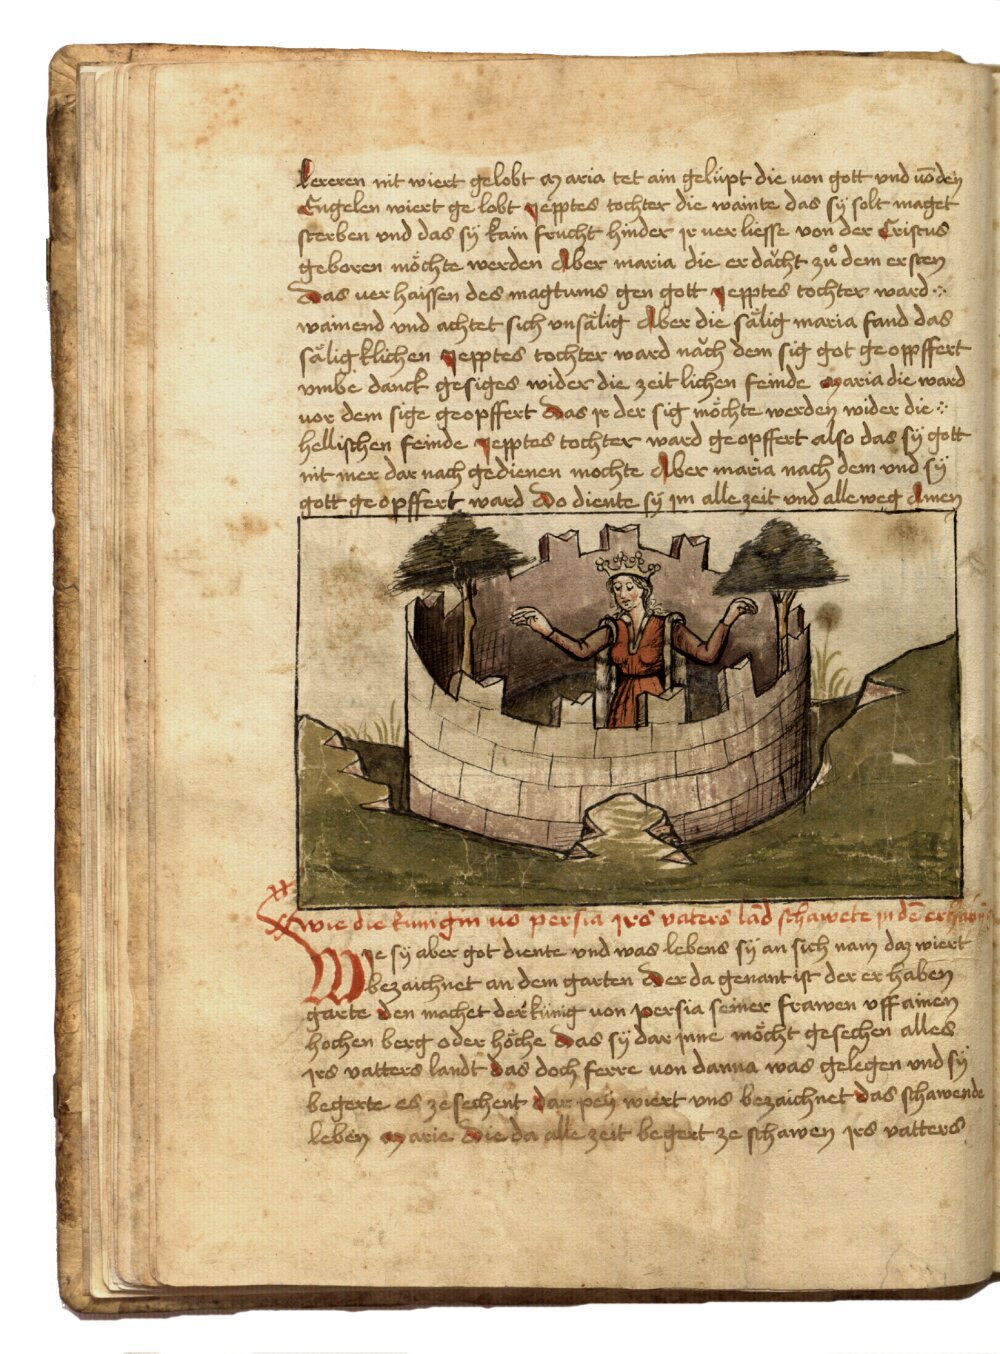 lereren nit wiert gelobt Maria tet ain gelüpt die von gott vnd võ den
Engelen wiert ge lobt Jepptes tochter die wainte das sÿ solt maget
sterben vnd das sÿ kain frucht hinder ir ver liesse von der Cristus
geboren möchte werden Aber maria die er dächt zů dem ersten
Das ver haissen des magtums gen gott Jepptes tochter ward
wainend vnd achtet sich vnsälig Aber die sälig maria fand das
sälig klichen Jepptes tochter ward näch dem sig got ge opffert
vmbe danck gesiges wider die zeitlichen feinde Maria die ward
vor dem sige geopffert Das ir der sig möchte werden wider die
hellischen feinde Jepptes tochter ward geopffert also das sÿ gott
nit mer dar nach gedienen mochte Aber maria nach dem vnd sÿ
gott ge opffert ward Do diente sÿ im alle zeit vnd alle weg Amen
xx
wie die künigin vo persia irs vaters lãd schawete in dẽ
Wie sÿ aber got diente vnd was lebens sÿ an sich nam daz wiert
bezaichnet an dem garten Der da genant ist der er haben
garte Den machet der künig von persia seiner frawen vff ainen
hochen berg oder höche Das sÿ dar inne möcht gesechen alles
irs vatters landt Das doch ferre von danna was gelegen vnd sÿ
begerte es ze sechent Dar peÿ wiert vns bezaichnet Das schawende
leben Marie Die da alle zeit begert ze schawen irs vatters